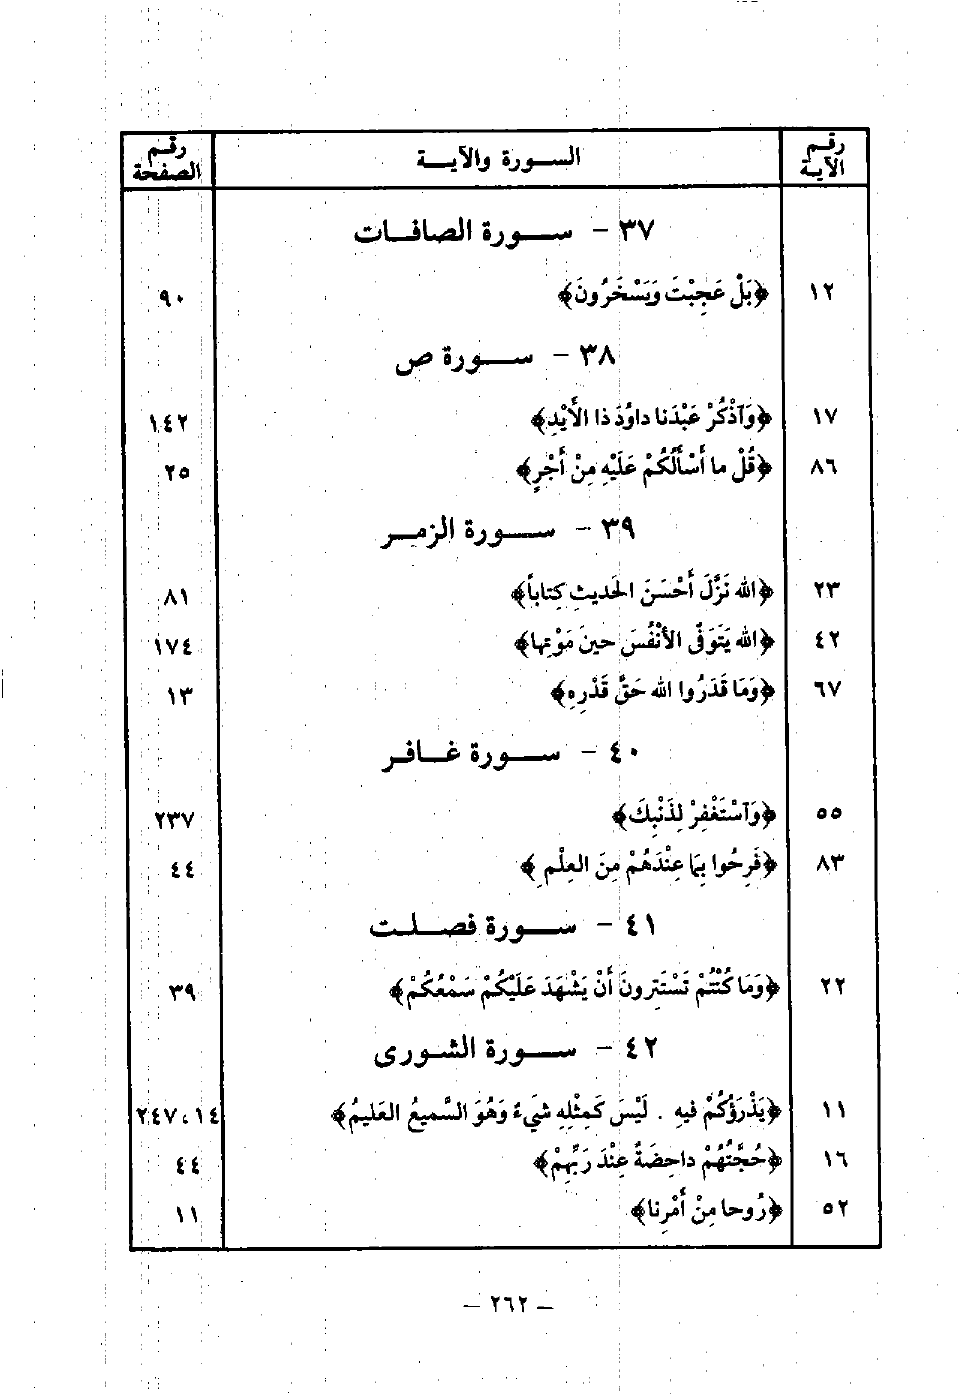 رقم الآية السورة والآية رقم الصفحة
٣٧ - سورة الصافات
١٢ ﴿بَلْ عَجِبْتَ وَيَسْخَرُونَ﴾ ٩٠
٣٨ - سورة ص
١٧ ﴿وَآذْكُرْ عَبْدَنا داوُدَ ذا الأَيْدِ﴾ ١٤٢
٨٦ ﴿قُلْ ما أَسْأَلُكُمْ عَلَيْهِ مِنْ أَجْرٍ﴾ ٢٥
٣٩ - سورة الزمر
٢٣ ﴿الله نَزَّلَ أَحْسَنَ الحَديثِ كِتاباً﴾ ٨١
٤٢ ﴿الله يَتَوَفَّى الأَنْفُسَ حينَ مَوْتِها﴾ ١٧٤
٦٧ ﴿وَمَا قَدَرُوا الله حَقَّ قَدْرِهِ﴾ ١٣
٤٠ - سورة غافر
٥٥ ﴿وَآسْتَغْفِرْ لِذَنْبِكَ﴾ ٢٣٧
٨٣ ﴿فَرِحُوا بِمَا عِنْدَهُمْ مِنَ العِلْمِ﴾ ٤٤
٤١ - سورة فصلت
٢٢ ﴿وَمَا كُنْتُمْ تَسْتَتِرونَ أَنْ يَشْهَدَ عَلَيْكُمْ سَمْعُكُمْ﴾ ٣٩
٤٢ - سورة الشورى
١١ ﴿يَذْرَؤُكُمْ فيهِ . لَيْسَ كَمِثْلِهِ شَيْءٌ وَهُوَ السَّميعُ العَليمُ﴾ ١٤، ٢٤٧
١٦ ﴿حُجَّتُهُمْ داحِضَةٌ عِنْدَ رَبِّهِمْ﴾ ٤٤
٥٢ ﴿رُوحا مِنْ أَمْرِنا﴾ ١١
- ٢٦٢ -